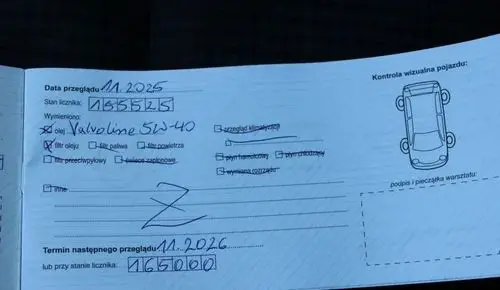 Data przeglądu 11.2025
Kontrola wizualna pojazdu:
Stan licznika: 155525
Wymieniono:
olej Valvoline 5W-40
przegląd klimatyzacji
filtr oleju filtr paliwa filtr powietrza
filtr przeciwpyłowy świece zapłonowe płyn hamulcowy płyn chłodzący
wymiana rozrządu
inne
Z
podpis i pieczątka warsztatu:
Termin następnego przeglądu 11.2026
lub przy stanie licznika: 165000